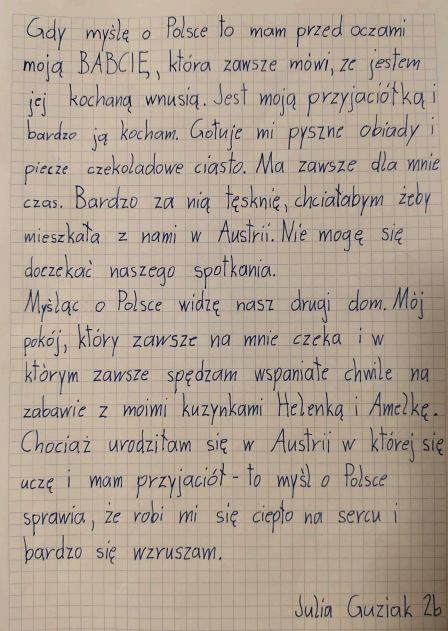 Gdy myślę o Polsce to mam przed oczami
moją BABCIĘ, która zawsze mówi, ze jestem
jej kochaną wnusią. Jest moją przyjaciółką i
bardzo ją kocham. Gotuje mi pyszne obiady i
piecze czekoladowe ciasto. Ma zawsze dla mnie
czas. Bardzo za nią tęsknię, chciałabym żeby
mieszkała z nami w Austrii. Nie mogę się
doczekać naszego spotkania.
Myśląc o Polsce widzę nasz drugi dom. Mój
pokój, który zawsze na mnie czeka i w
którym zawsze spędzam wspaniałe chwile na
zabawie z moimi kuzynkami Helenką i Amelkę.
Chociaż urodziłam się w Austrii w której się
uczę i mam przyjaciół - to myśl o Polsce
sprawia, że robi mi się ciepło na sercu i
bardzo się wzruszam.
Julia Guziak 2b